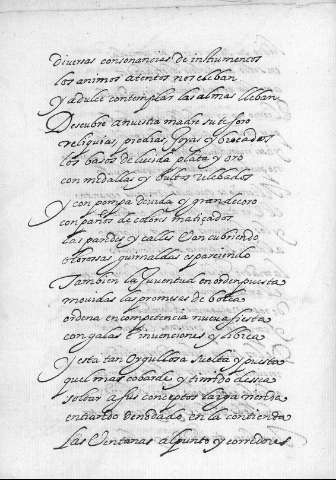 diversas consonancias de instrumentos
los animos atentos nos eleban
y a dulce contemplar las almas lleban
Descubre a nuestra madre su tesoro
reliquias, piedras, Joyas y brocados
los basos de lucida plata y oro
con medallas y bultos relebados
y con pompa devida y gran decoro
con paños de colores matiçados
las paredes y calles van cubriendo
olorosas guirnaldas esparciendo
Tambien la Juventud en orden puesta
movidas las promesas de
ordena en competencia nueva fiesta
con galas e invenciones y librea
y esta tan orgullosa suelta y puesta
quel mas cobarde y timido dessea
soltar a sus conceptos larga rienda
entrando denodado en la contienda
Las Ventanas al punto y corredores